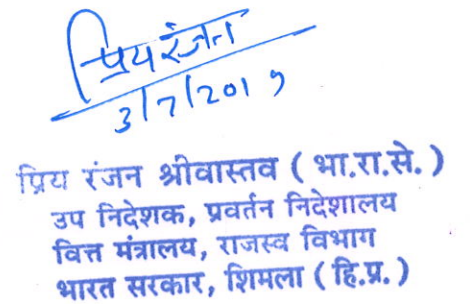 प्रिय रंजन
3/7/2019
प्रिय रंजन श्रीवास्तव ( भा.रा.से. )
उप निदेशक, प्रवर्तन निदेशालय
वित्त मंत्रालय, राजस्व विभाग
भारत सरकार, शिमला ( हि.प्र. )